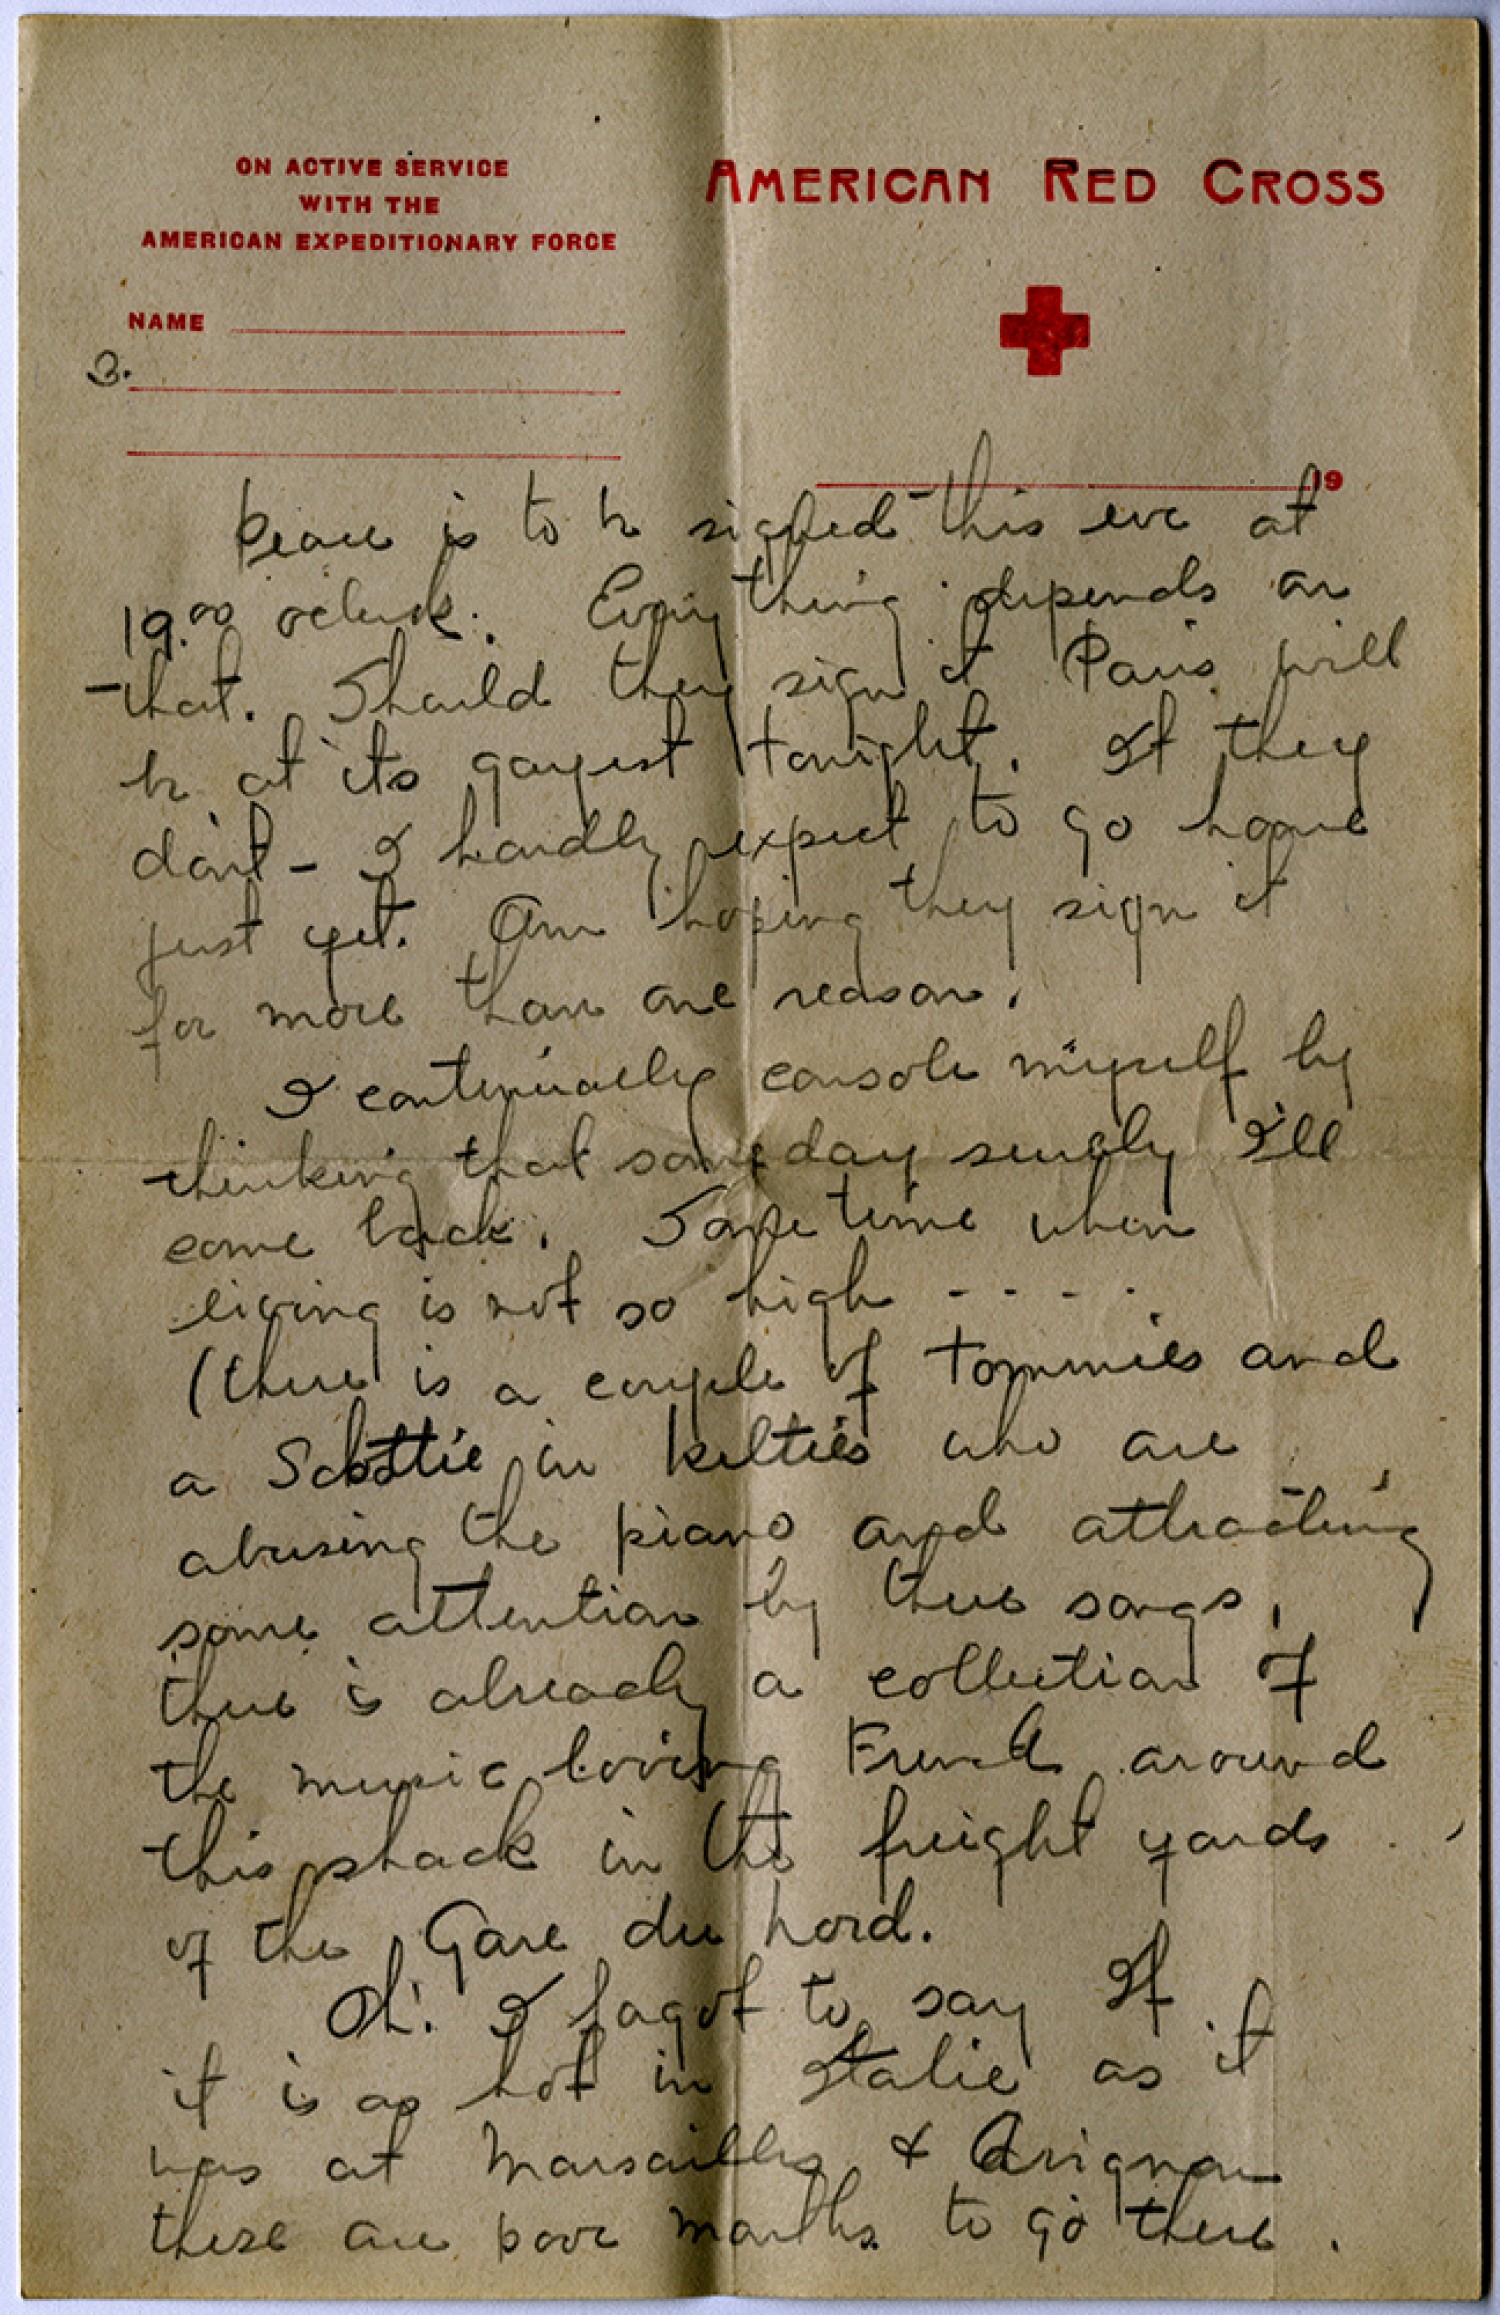 ON ACTIVE SERVICE
WITH THE
AMERICAN EXPEDITIONARY FORCE
NAME
3.
AMERICAN RED CROSS
19
Peace is to be signed this eve at
19.00 oclock. Everything depends on
that. Should they sign it Paris will
be at its gayest tonight. If they
don't - I hardly expect to go home
just yet. Am hoping they sign it
for more than one reason.
I continually console myself by
thinking that someday surely I'll
come back. Some time when
living is not so high - - - -
(there is a couple of Tommies and
a Scottie in kilties who are
abusing the piano and attracting
some attention by there songs,
there is already a collection of
the music loving French around
this shack in the freight yards
of the Gare du nord.
Oh! I fagot to say If
it is as hot in Italie as it
was at Marsailles & Avignon
these are poor months to go there.